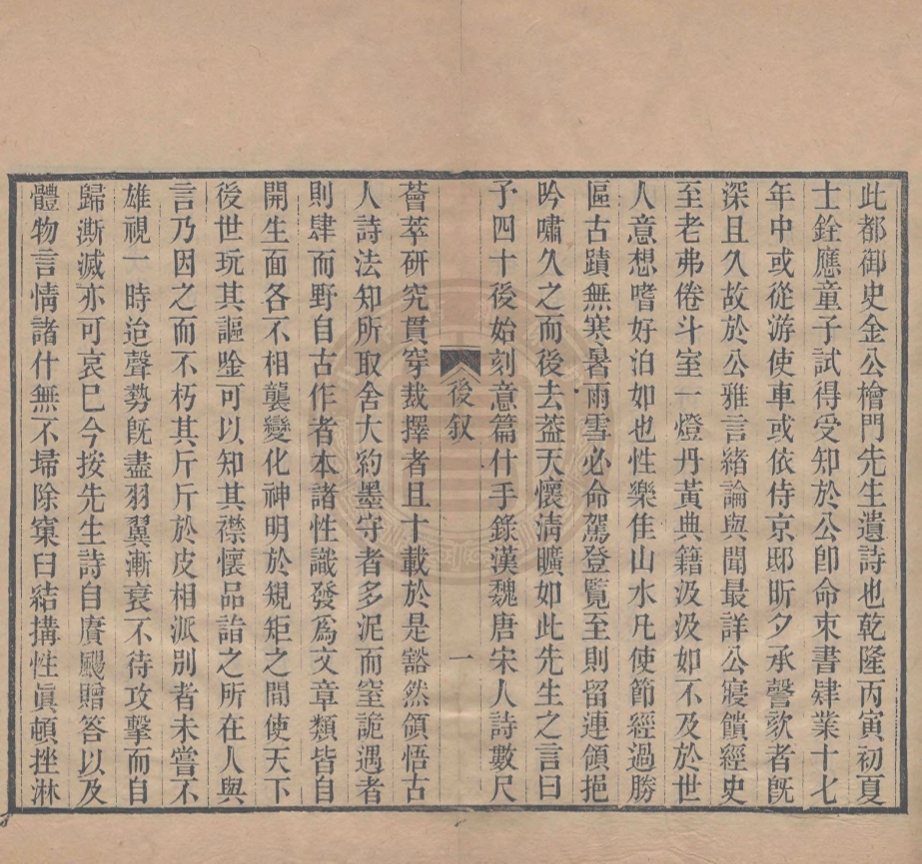 此都御史金公檜門先生遺詩也乾隆丙寅初夏
士銓應童子試得受知於公卽命束書肄業十七
年中或從游使車或依侍京邸昕夕承謦欬者旣
深且久故於公雅言緒論與聞最詳公寢饋經史
至老弗倦斗室一燈丹黃典籍汲汲如不及於世
人意想嗜好泊如也性樂佳山水凡使節經過勝
區古蹟無寒暑雨雪必命駕登覽至則留連領挹
吟嘯久之而後去葢天懷淸曠如此先生之言曰
予四十後始刻意篇什手錄漢魏唐宋人詩數尺
後叙
一
薈萃硏究貫穿裁擇者且十載於是豁然領悟古
人詩法知所取舍大約墨守者多泥而窒詭遇者
則肆而野自古作者本諸性識發爲文章類皆自
開生面各不相襲變化神明於規矩之間使天下
後世玩其謳唫可以知其襟懷品詣之所在人與
言乃因之而不朽其斤斤於皮相派別者未嘗不
雄視一時迨聲勢旣盡羽翼漸衰不待攻擊而自
歸澌滅亦可哀巳今按先生詩自賡颺贈答以及
體物言情諸什無不埽除窠臼結搆性眞頓挫淋